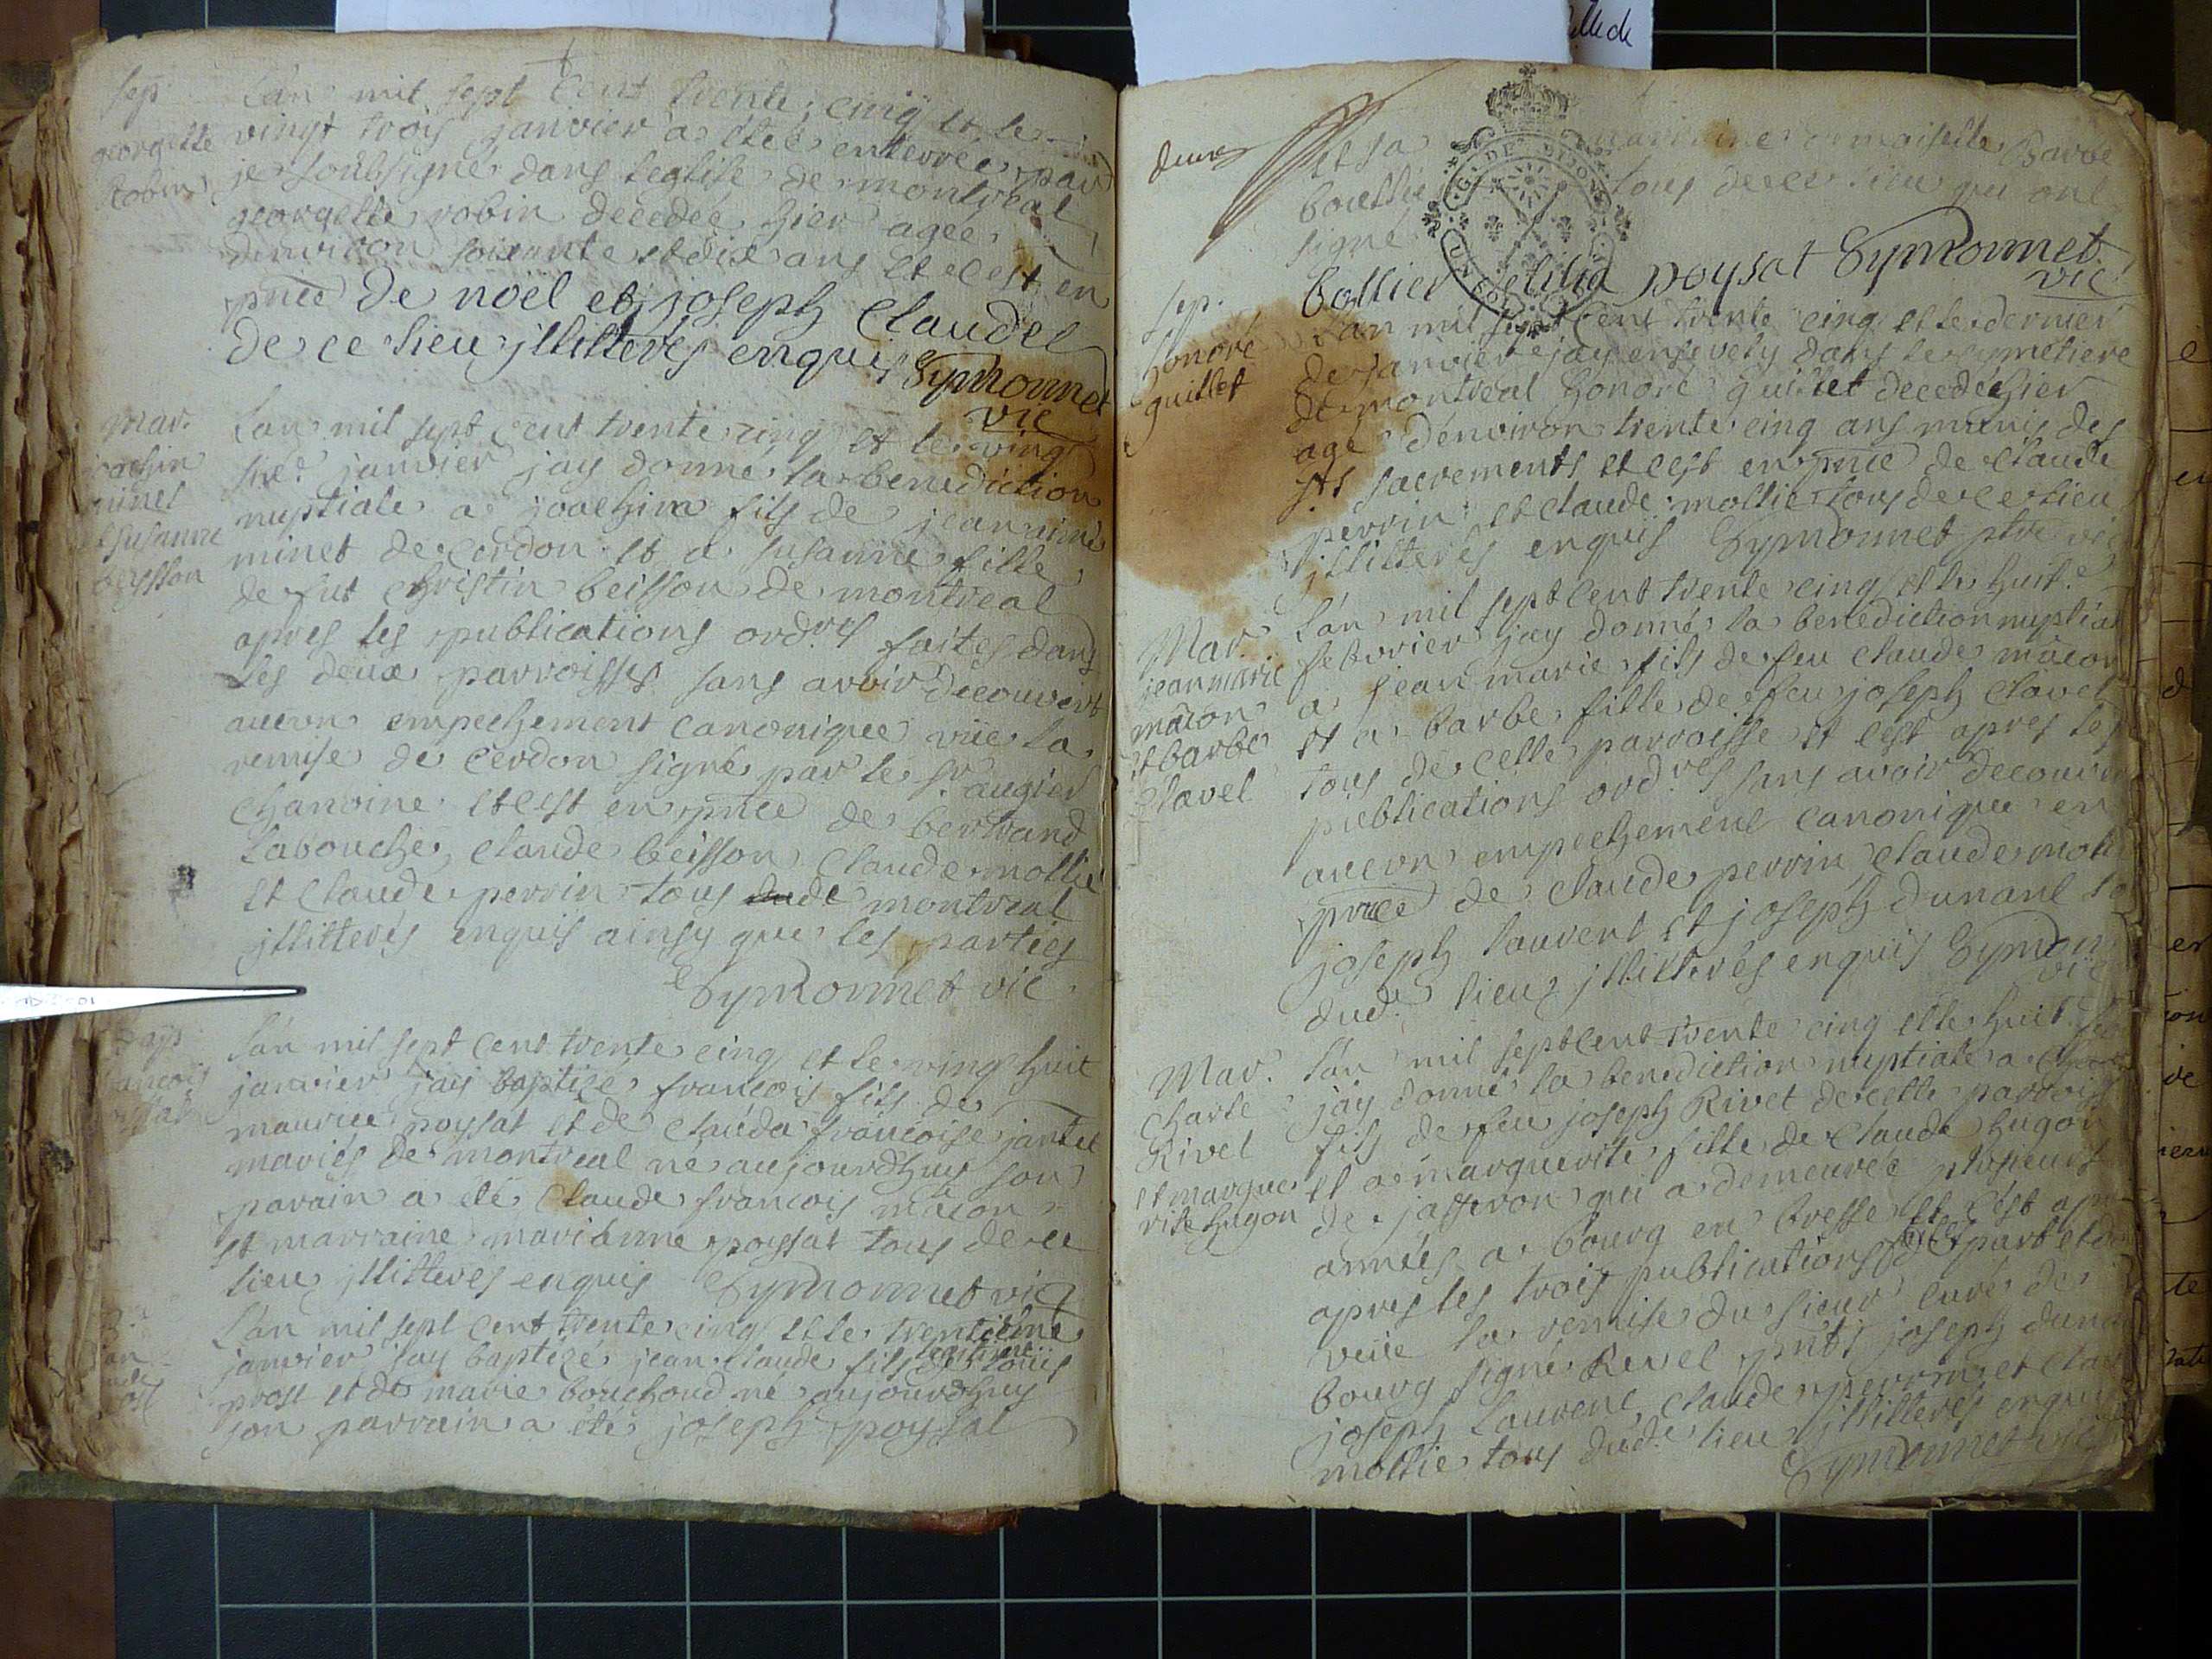 sep.
georgette
Robin
L'an mil sept cent trente cinq et le
vingt trois janvier a étée enterrée par
je soubsigné dans l'eglise de montreal
georgette robin decedée hier agée
d'environ soixante et dix ans et c'est en
pnce de noël et joseph Claudel
de ce lieu jllitterés enquis Symonnet
vic
mar.
joachin
minet
et susanne
beysson
L'an mil sept cent trente cinq et le vingt
six.e janvier jay donné la benediction
nuptiale a joachim fils de jean aimé
minet de Cerdon et a susanne fille
de fut Christin beisson de montreal
apres les publications ord.res faites dans
les deux parroisses sans avoir decouvert
aucun empechement canonique vüe la
remise de Cerdon signé par le sr. augier
chanoine et c'est en pnce de bertrand
Labouche, Claude beisson Claude mollie
et Claude perrin tous de montreal
jllitterés enquis ainsy que les parties
Symonnet vic
bap.
francois
L'an mil sept cent trente cinq et le vingt huit
janvier jay baptizé francois fils de
maurice poysat et de Clauda francoise jantet
mariés de montreal né aujourdhuy son
parain a été Claude francois mâcon
et marraine marianne poysat tous de ce
lieu jllitterés enquis Symonnet vic
L'an mil sept cent trente cinq et le trentième
janvier jay baptizé jean Claude fils legitime de Loüis
prost et de marie bouchoud né aujourdhuy
son parrain a été joseph poysat
deux
et sa marraine demoiselle Barbe
bollie tous de ce lieu qui ont
signé
bollier poysat Symonnet
vic
sep.
honoré
guillet
L'an mil sept cent trente cinq et le dernier
de janvier jay ensevely dans le cymetiere
de montreal honoré guillet decedé hier
agé d'environ trente cinq ans munis des
sts sacrements et c'est en pnce de Claude
perrin et Claude mollie tous de ce lieu
jllitterés enquis Symonnet ptre vic
Mar.
jean marie
mâcon
et barbe
Clavel
L'an mil sept cent trente cinq et le huit.e
febvrier jay donné la benediction nuptial
a jean marie fils de feu Claude mâcon
et a barbe fille de feu joseph Clavel
tous de cette parroisse et c'est apres les
publications ord.res sans avoir decouvert
aucun empechement canonique en
pnce de Claude perrin, Claude
joseph Laurent et joseph dunant
dud. lieu jllitterés enquis Symon
vic
Mar.
Charle
Rivet
et margue
rite hugon
L'an mil sept cent trente cinq et le huit
jay donné la benediction nuptiale a
fils de feu joseph Rivet de cette parroiss
et a marguerite fille de Claude hugon
de jasseron qui a demeurée plusieurs
années a bourg en bresse et c'est
apres les trois publications part et
veüe la remise du sieur curé de
bourg signé Revel pnts joseph
joseph Laurent, Claude perrin et
mollie tous dud. lieu jllitterés enquis
Symonnet vic